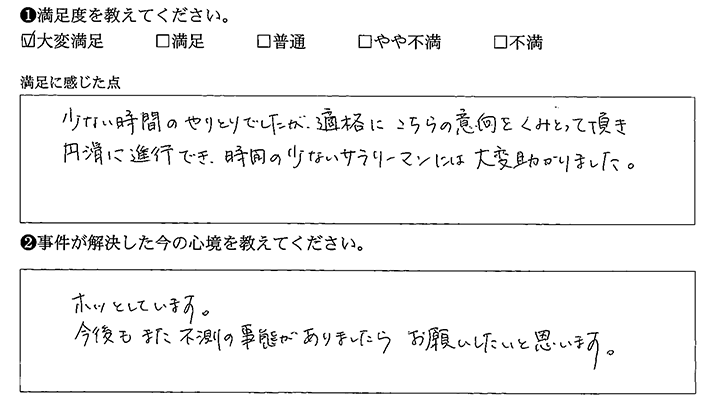 ❶満足度を教えてください。
☑大変満足 □満足 □普通 □やや不満 □不満
満足に感じた点
少ない時間のやりとりでしたが、適格にこちらの意向をくみとって頂き
円滑に進行でき、時間の少ないサラリーマンには大変助かりました。
❷事件が解決した今の心境を教えてください。
ホッとしています。
今後もまた不測の事態がありましたらお願いしたいと思います。